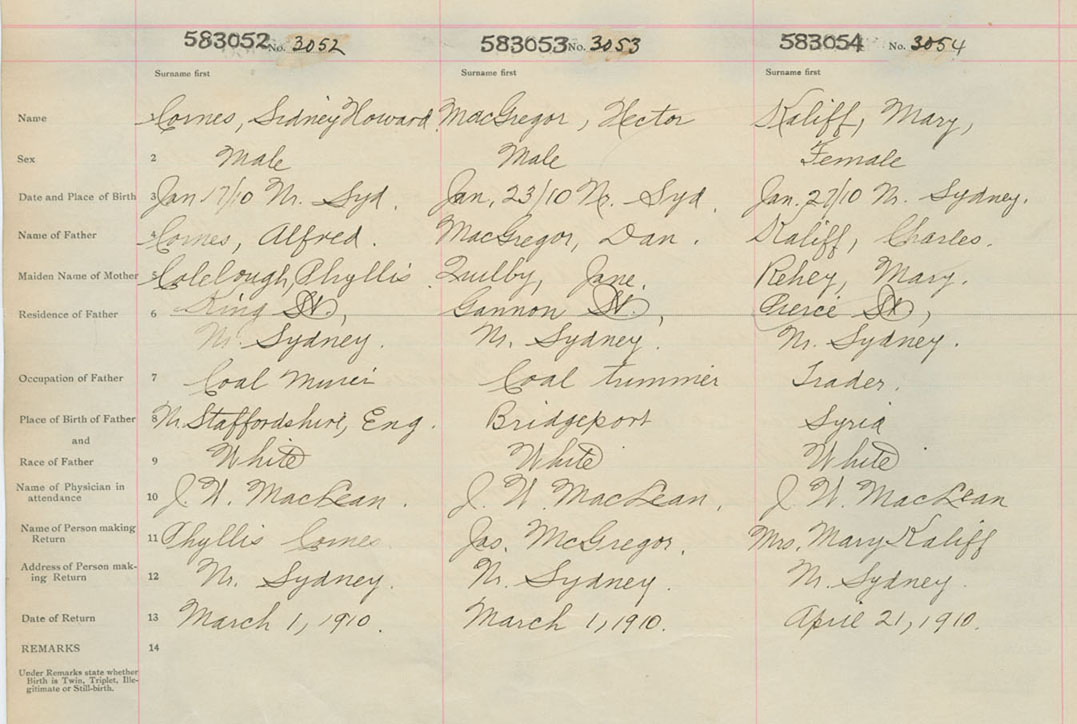 583052 No. 3052 583053 No. 3053 583054 No. 3054
Surname first Surname first Surname first
Name Comes, Sidney Howard MacGregor, Hector Kaliff, Mary,
Sex 2 Male Male Female
Date and Place of Birth 3 Jan 17/10 Nr. Syd. Jan. 23/10 Nr. Syd. Jan. 27/10 Nr. Sydney.
Name of Father 4 Comes, Alfred. MacGregor, Dan. Kaliff, Charles.
Maiden Name of Mother 5 Colclough, Phyllis Quilby, Jane. Rehey, Mary.
Residence of Father 6 King St, Gannon St., Pierce St,
Nr. Sydney. Nr. Sydney. Nr. Sydney.
Occupation of Father 7 Coal Miner Coal trimmer Trader.
Place of Birth of Father 8 Nr. Staffordshire, Eng. Bridgeport Syria
and
Race of Father 9 White White White
Name of Physician in
attendance 10 J. W. MacLean. J. W. MacLean. J. W. MacLean
Name of Person making
Return 11 Phyllis Comes Jas. McGregor. Mrs. Mary Kaliff
Address of Person mak-
ing Return 12 Nr. Sydney. Nr. Sydney Nr. Sydney.
Date of Return 13 March 1, 1910. March 1, 1910. April 21, 1910.
REMARKS 14
Under Remarks state whether
Birth is Twin, Triplet, Ille-
gitimate or Still-birth.